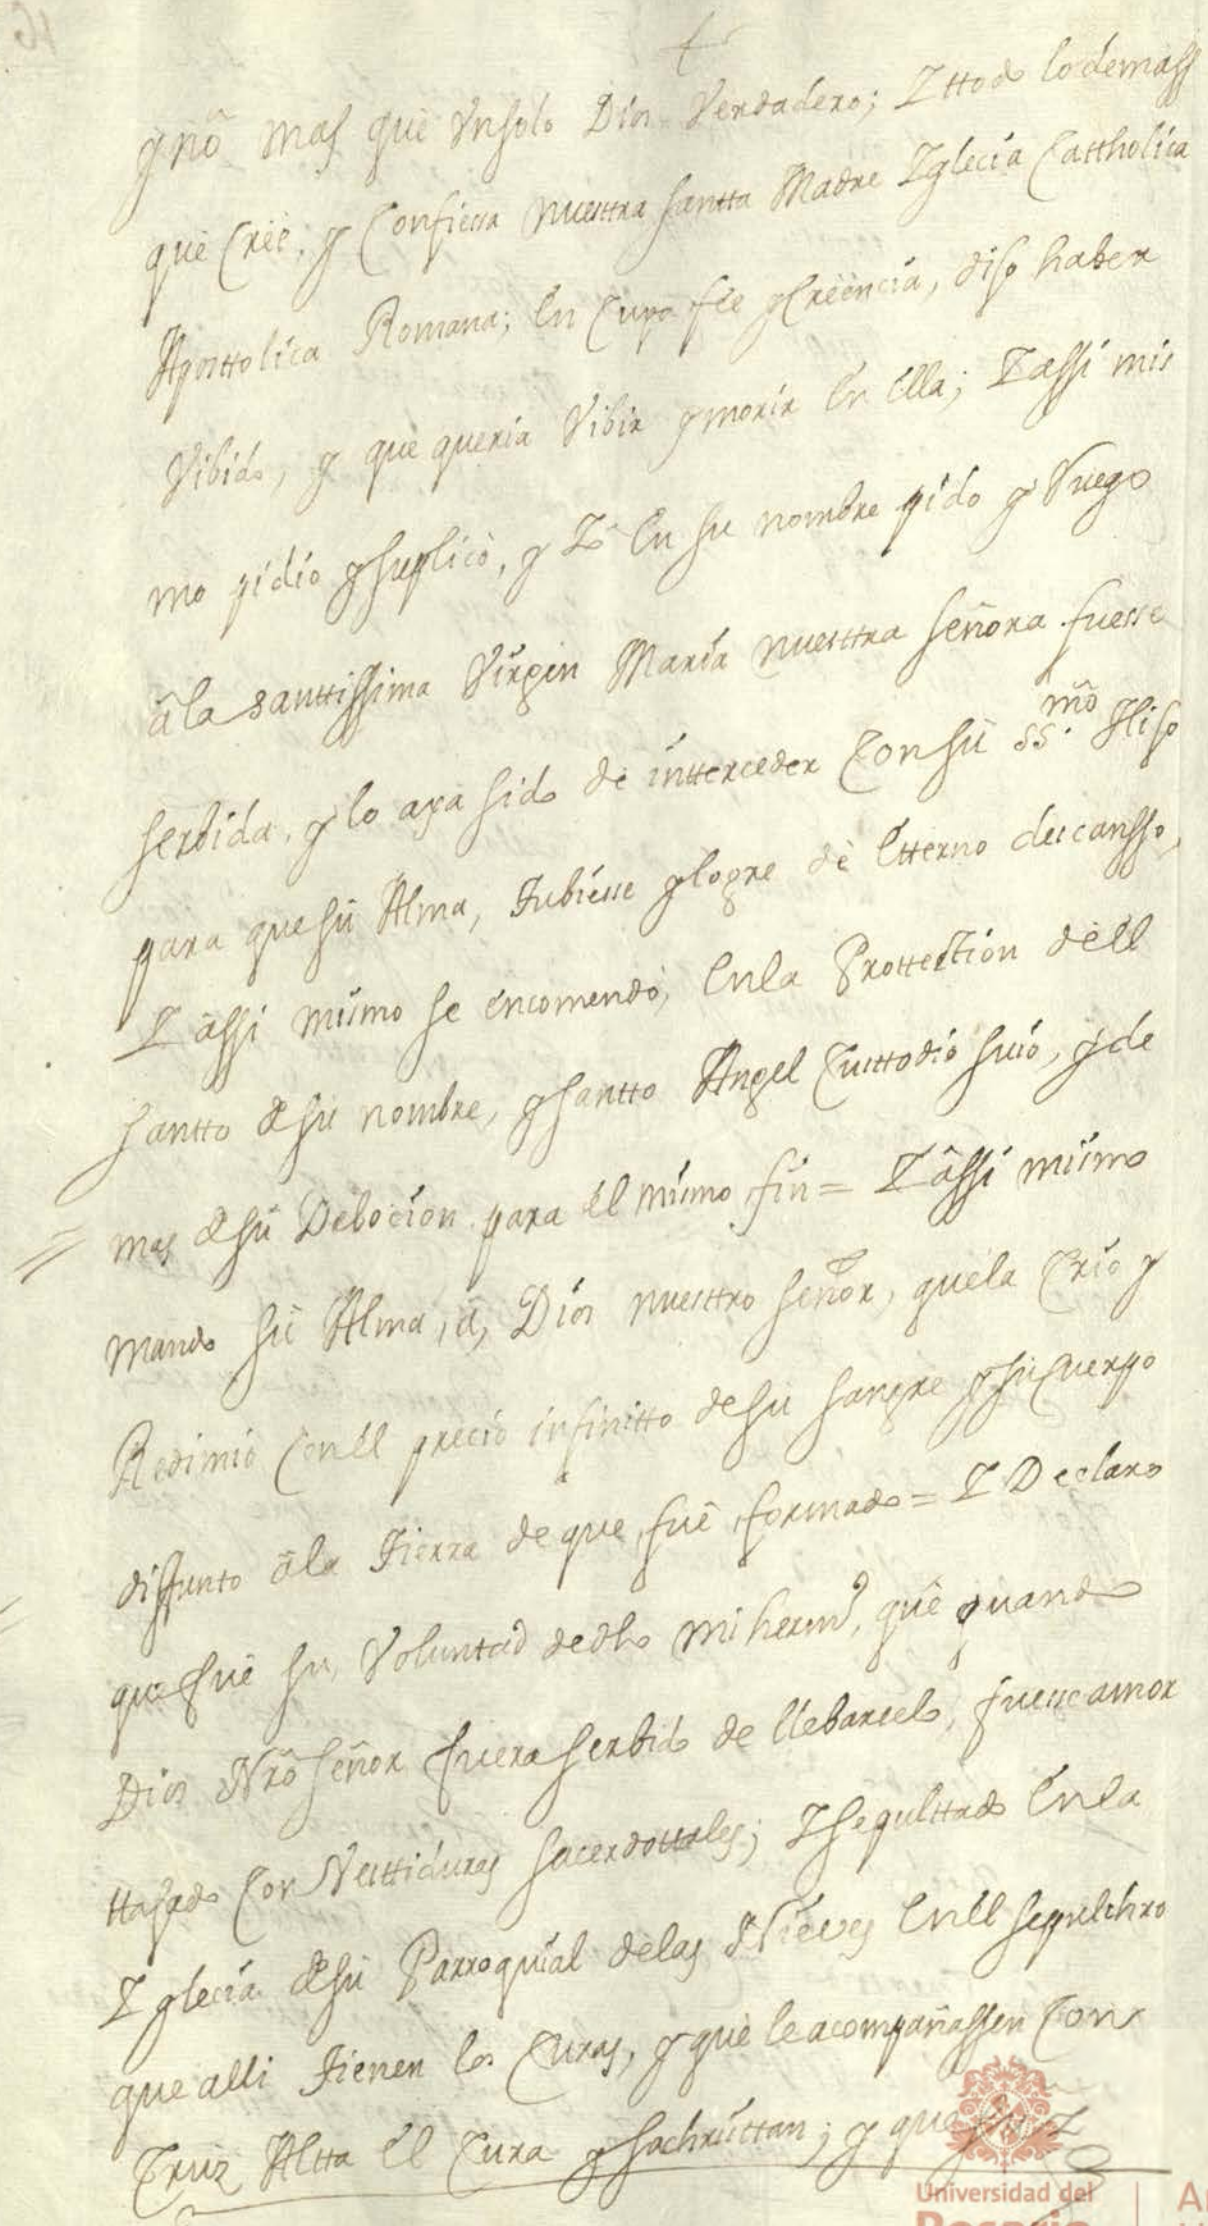 y nō mas què Vn solo Dios Verdadero; Y ttodo lo demass
què Creè, y Confiessa Nuesttra santta Madre Yglecia Cattholica
Aposttolica Romana; En Cuya fee y Creèncía, diso haber
Vibido, y que quería Vibir y morir En Ella; Y assi mis
mo pidió y suplicò, y Yo En su nombre pido y Ruego
â la santtissima Virgen María Nuesttra Señora fuesse
serbida, y lo aya sido de intterceder Con sü SS.mo Hiso
para que sü Alma, Tubiesse y logre de Etterno descansso,
Y âssi mismo se èncomendò, En la Prottection dèll
santto de su nombre, y santto Angel Custtodio suio, y de
mas de sü Deboción para èl mismo fin = Y âssi mismo
mando sü Alma, â, Dios nuesttro señor, que la Crió y
Redimió Con èl precio infinitto de su sangre y su Cuerpo
diffunto â la Tierra de que fuê formado = Y Declaro
que fuè su Voluntad de dho mi herm.o, què quando
Dios Nrō Señor fuera serbido de llebarselo, fuesse amor
ttasado Con Vesttiduras sacerdottales; Y sepulttado En la
Yglecía de sü Parroquial de las Nieves En èl sepulchro
que alli Tienen los Curas, y què le acompañassen Con
Cruz Altta èl Cura y sachrísttan; y que
Universidad del
Rosario